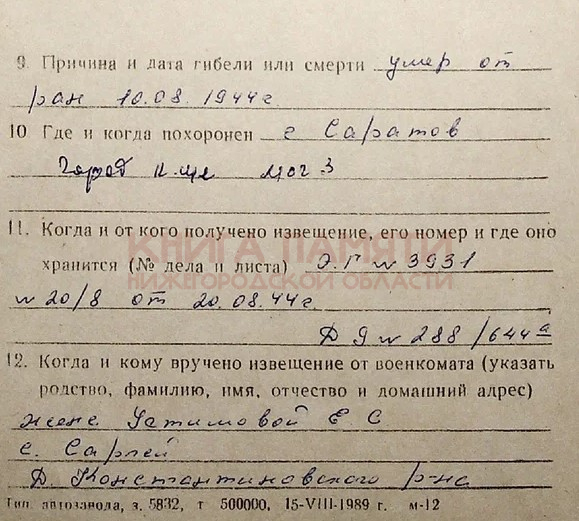 9. Причина и дата гибели или смерти умер от
ран 10.08.1944г
10. Где и когда похоронен г Саратов
Город к-ще мог 3
11. Когда и от кого получено извещение, его номер и где оно
хранится (№ дела и листа) Э.Г № 3931
№ 20/8 от 20.08.44г.
Д 9 № 288 /644а
КНИГА ПАМЯТИ
НИЖЕГОРОДСКОЙ ОБЛАСТИ
12. Когда и кому вручено извещение от военкомата (указать
родство, фамилию, имя, отчество и домашний адрес)
жене Устимовой Е С
с. Сарлей
Д. Константиновского р-на
Тип. автозавода, з. 5832, т 500000, 15-VIII-1989 г. м-12